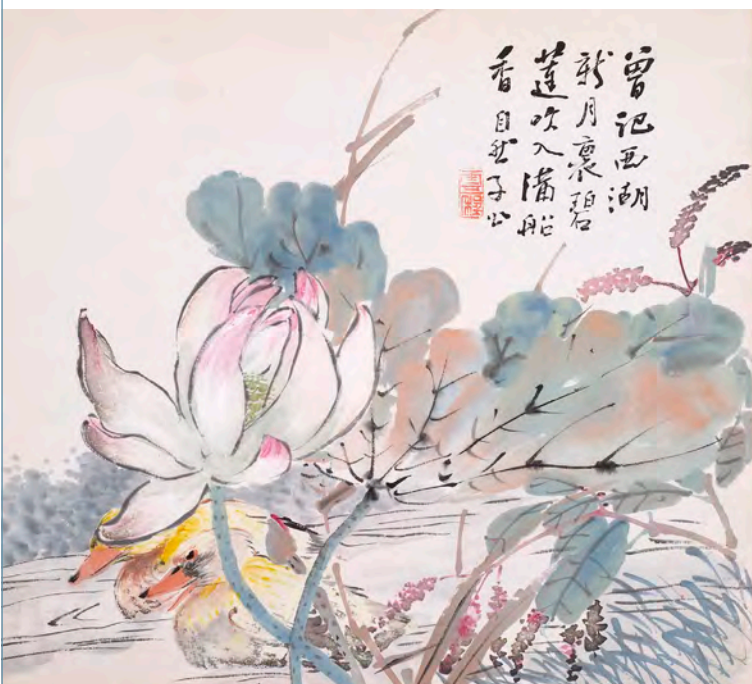 曾記西湖
新月裏碧
蓮吹入滿船
香自然子